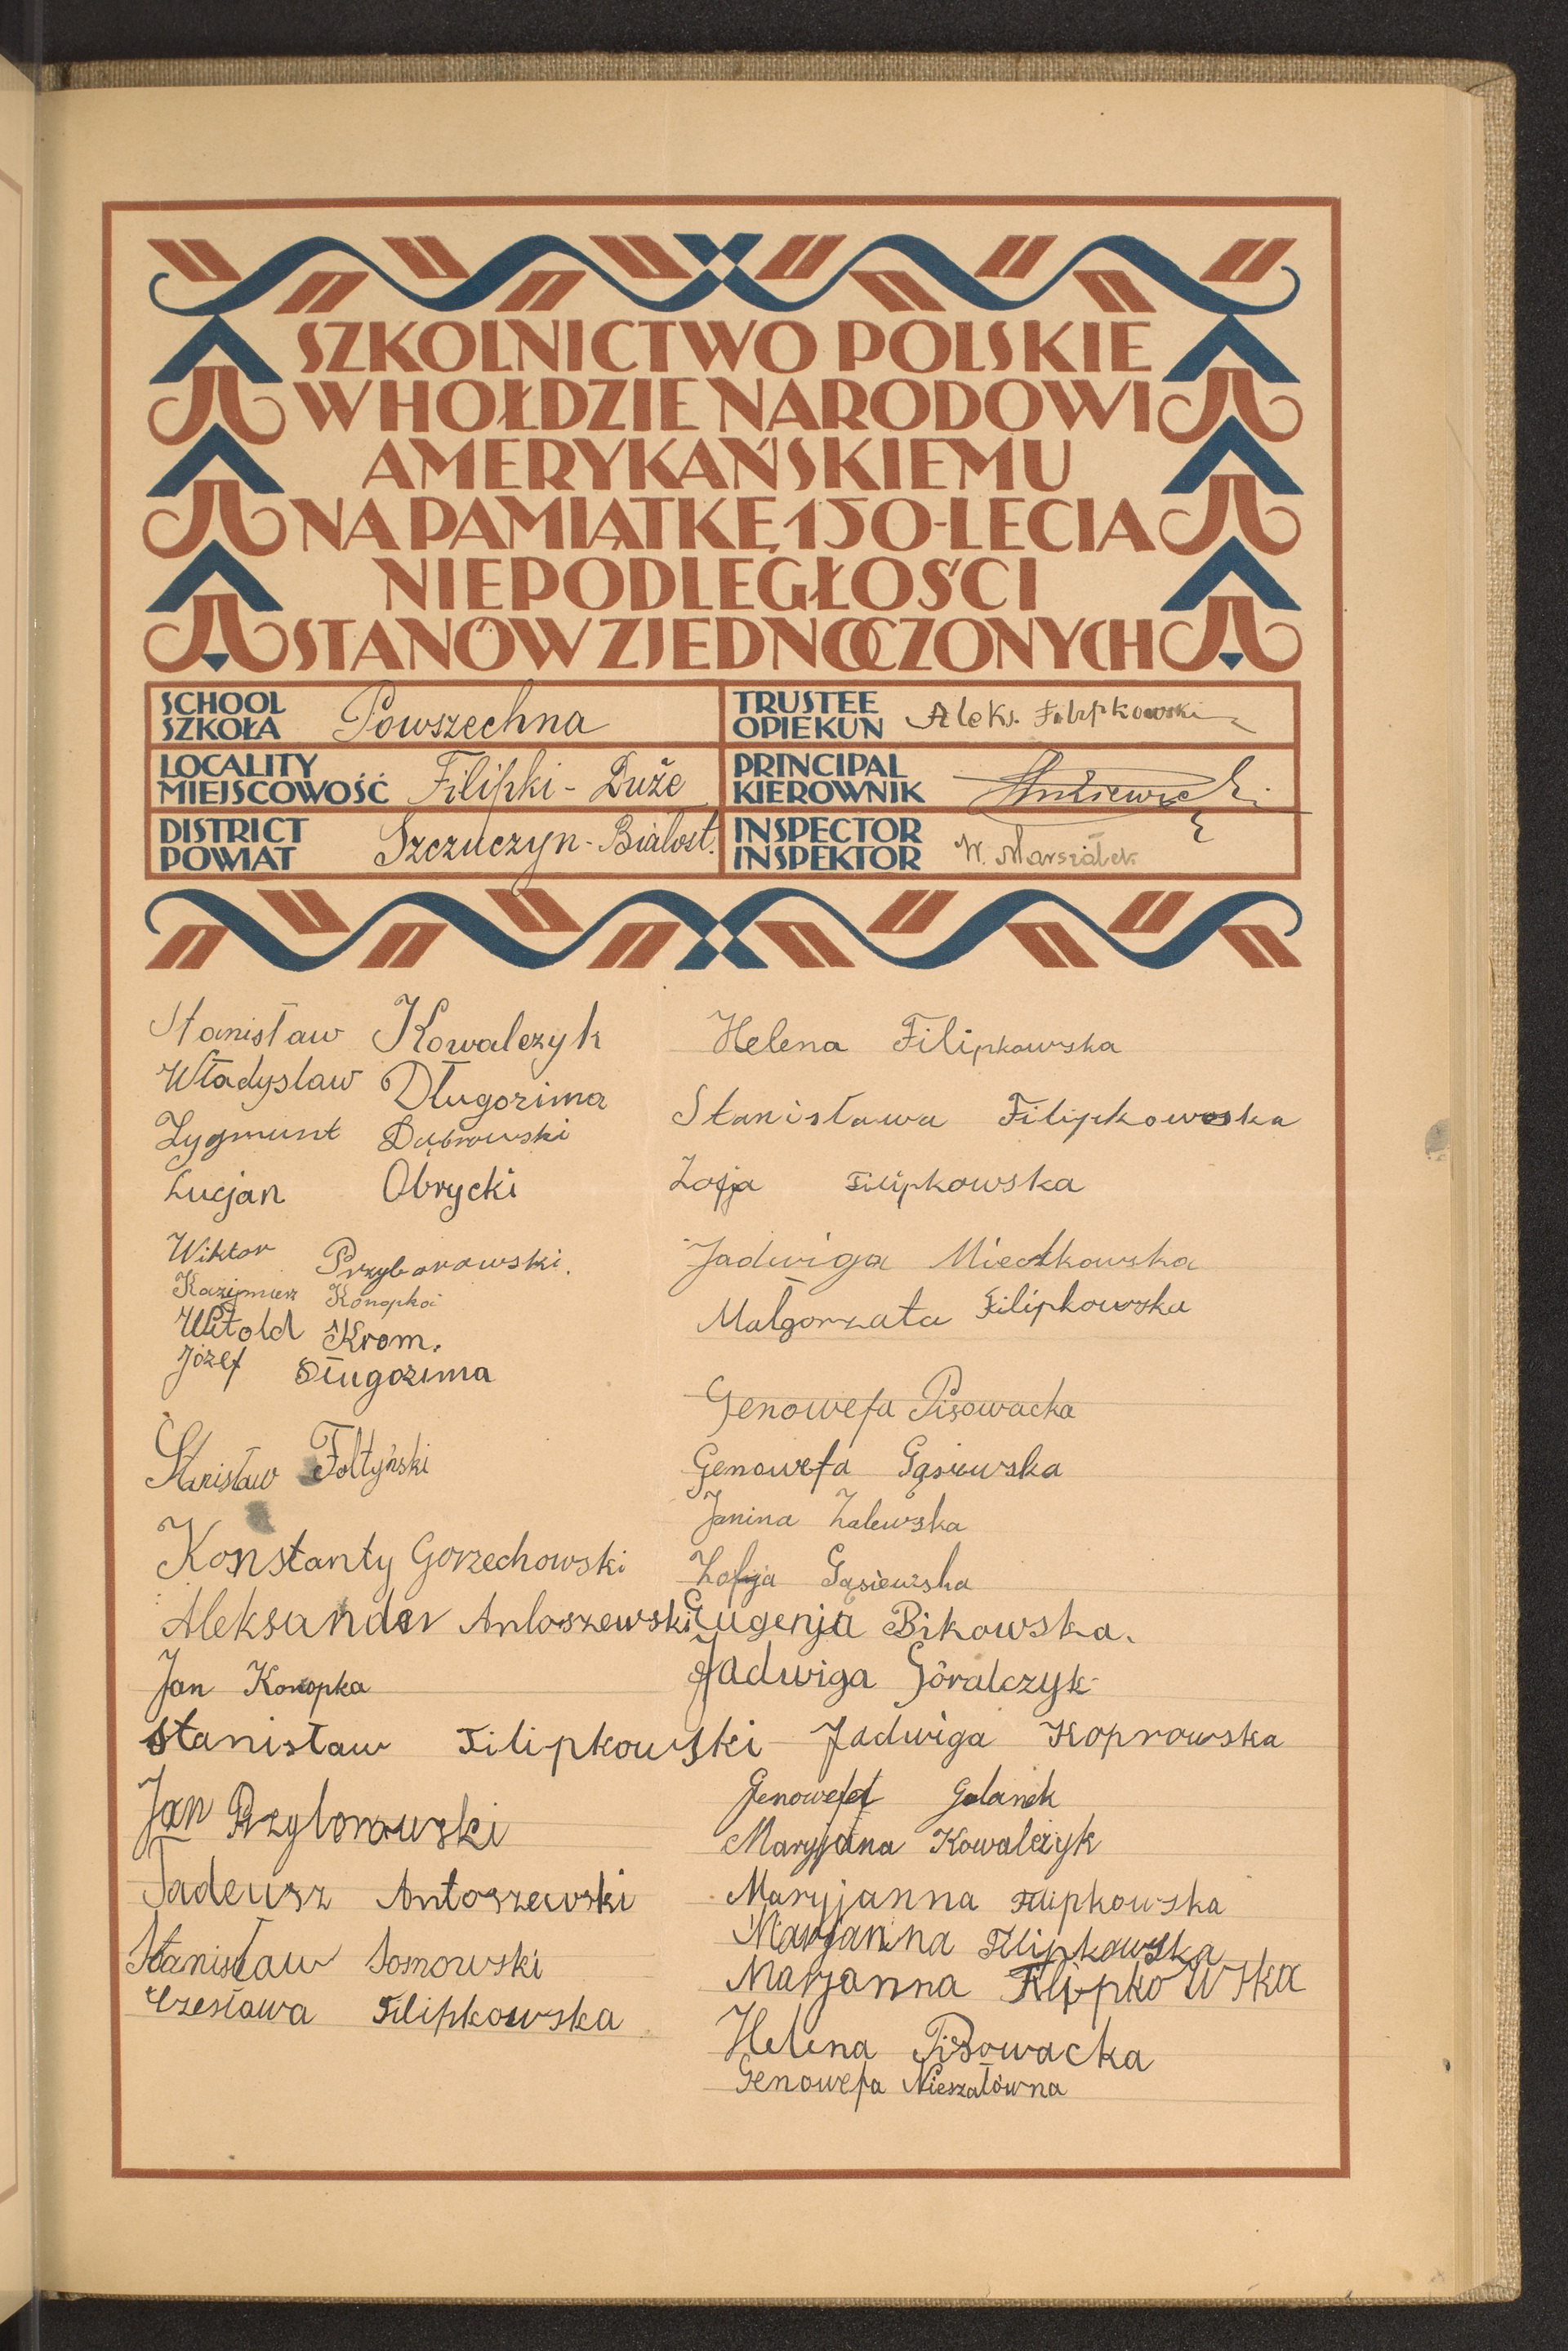 SZKOLNICTWO POLSKIE
W HOŁDZIE NARODOWI
AMERYKAŃSKIEMU
NA PAMIĄTKĘ 150-LECIA
NIEPODLEGŁOŚCI
STANÓW ZJEDNOCZONYCH
SCHOOL
SZKOŁA
Powszechna
TRUSTEE
OPIEKUN
Aleks. Filipkowski
LOCALITY
MIEJSCOWOŚĆ
Filipki - Duże
PRINCIPAL
KIEROWNIK
DISTRICT
POWIAT
Szczuczyn - Białost.
INSPECTOR
INSPEKTOR
W. Marszałek
Stanisław Kowalczyk
Władysław Długozima
Zygmunt Dąbrowski
Lucjan Obrycki
Wiktor Przyborowski.
Kazimierz Konopka
Witold Krom.
Józef Długozima
Stanisław Fołtyński
Konstanty Gorzechowski
Aleksander Antoszewski
Jan Konopka
Stanisław Filipkowski
Jan Przyborowski
Tadeusz Antoszewski
Stanisław Sosnowski
Czesława Filipkowska
Helena Filipkowska
Stanisława Filipkowska
Zofja Filipkowska
Jadwiga Mieczkowska
Małgorzata Filipkowska
Genowefa Pisowacka
Genowefa Gąsiewska
Janina Zalewska
Zofja Gąsiewska
Eugenja Bikowska.
Jadwiga Góralczyk
Jadwiga Koprowska
Genowefa Galanek
Maryjana Kowalczyk
Maryjanna Filipkowska
Marjanna Filipkowska
Marjanna Filipkowska
Helena Pisowacka
Genowefa Nieszałówna